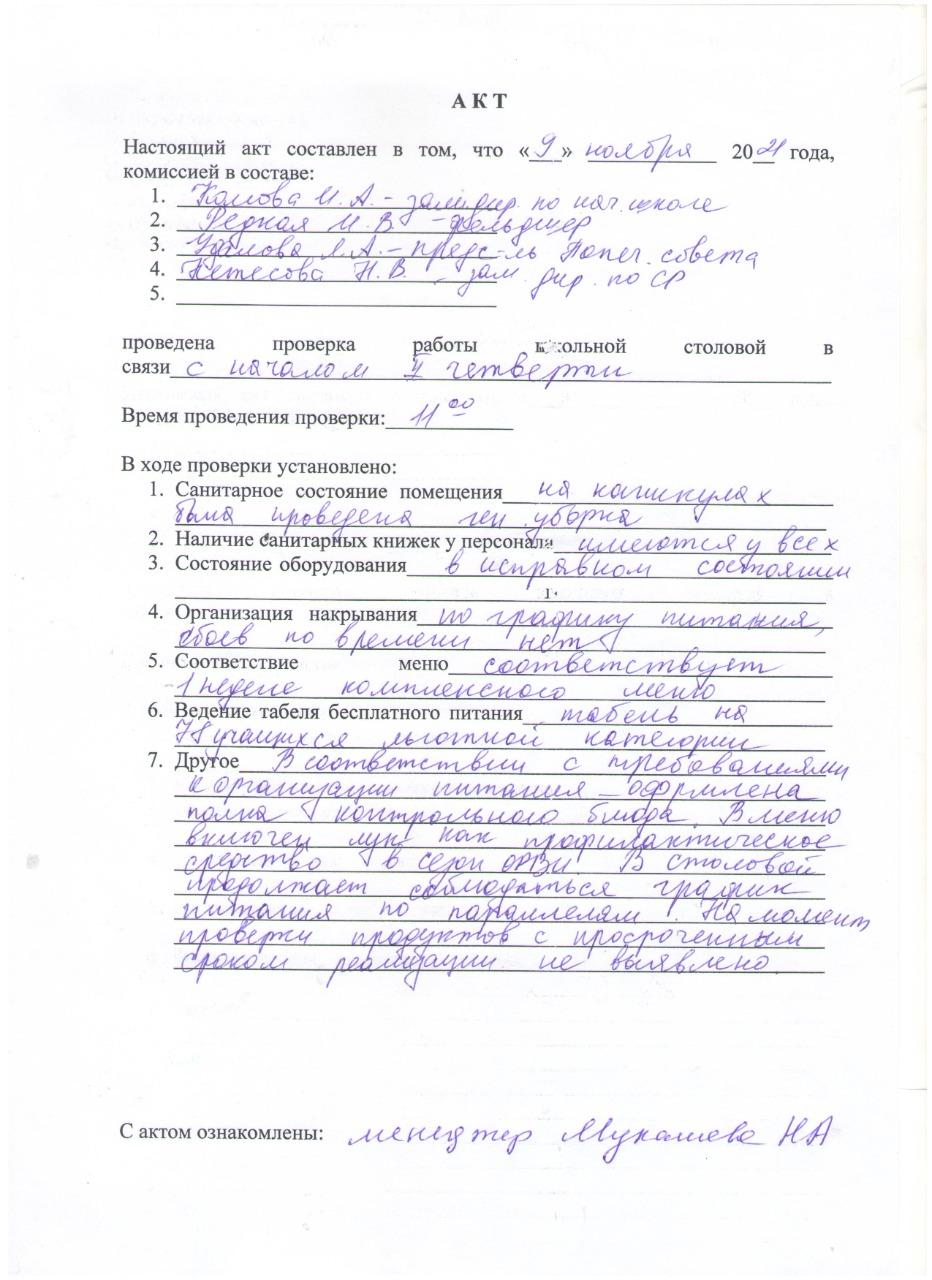 А К Т
Настоящий акт составлен в том, что «9» ноября 2021 года,
комиссией в составе:
1. И. А. – зам. дир. по нач. школе
2. Редкая И. В. – фельдшер
3. А. – предс-ль Попеч. совета
4. Нетесова Н. В. – зам. дир. по СР
5.
проведена проверка работы школьной столовой в
связи с началом II четверти
Время проведения проверки: 11 00
В ходе проверки установлено:
1. Санитарное состояние помещения на каникулах
была проведена ген. уборка
2. Наличие санитарных книжек у персонала имеются у всех
3. Состояние оборудования в исправном состоянии
4. Организация накрывания по графику питания,
сбоев по времени нет
5. Соответствие меню соответствует
1 неделе комплексного меню
6. Ведение табеля бесплатного питания табель на
учащихся льготной категории
7. Другое В соответствии с требованиями
к организации питания – оформлена
полка контрольного блюда. В меню
включен лук как профилактическое
средство в сезон ОРВИ. В столовой
продолжает соблюдаться график
питания по параллелям. На момент
проверки продуктов с просроченным
сроком реализации не выявлено.
С актом ознакомлены: менеджер НА